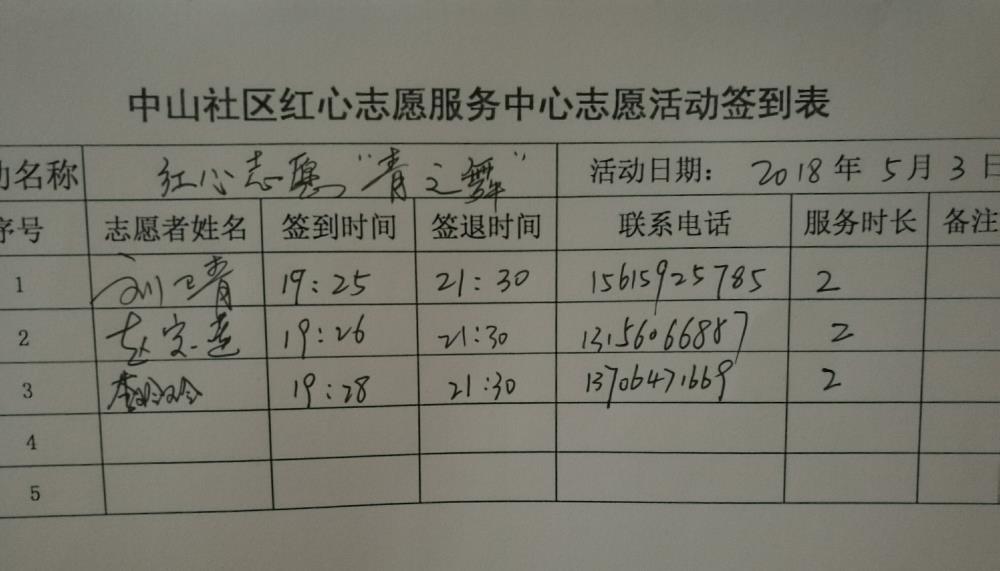 中山社区红心志愿服务中心志愿活动签到表
动名称 红心志愿"青之舞" 活动日期： 2018年5月3日
序号 志愿者姓名 签到时间 签退时间 联系电话 服务时长 备注
1 刘卫青 19:25 21:30 15615925785 2
2 赵宝莲 19:26 21:30 13156066887 2
3 19:28 21:30 13706471669 2
4
5